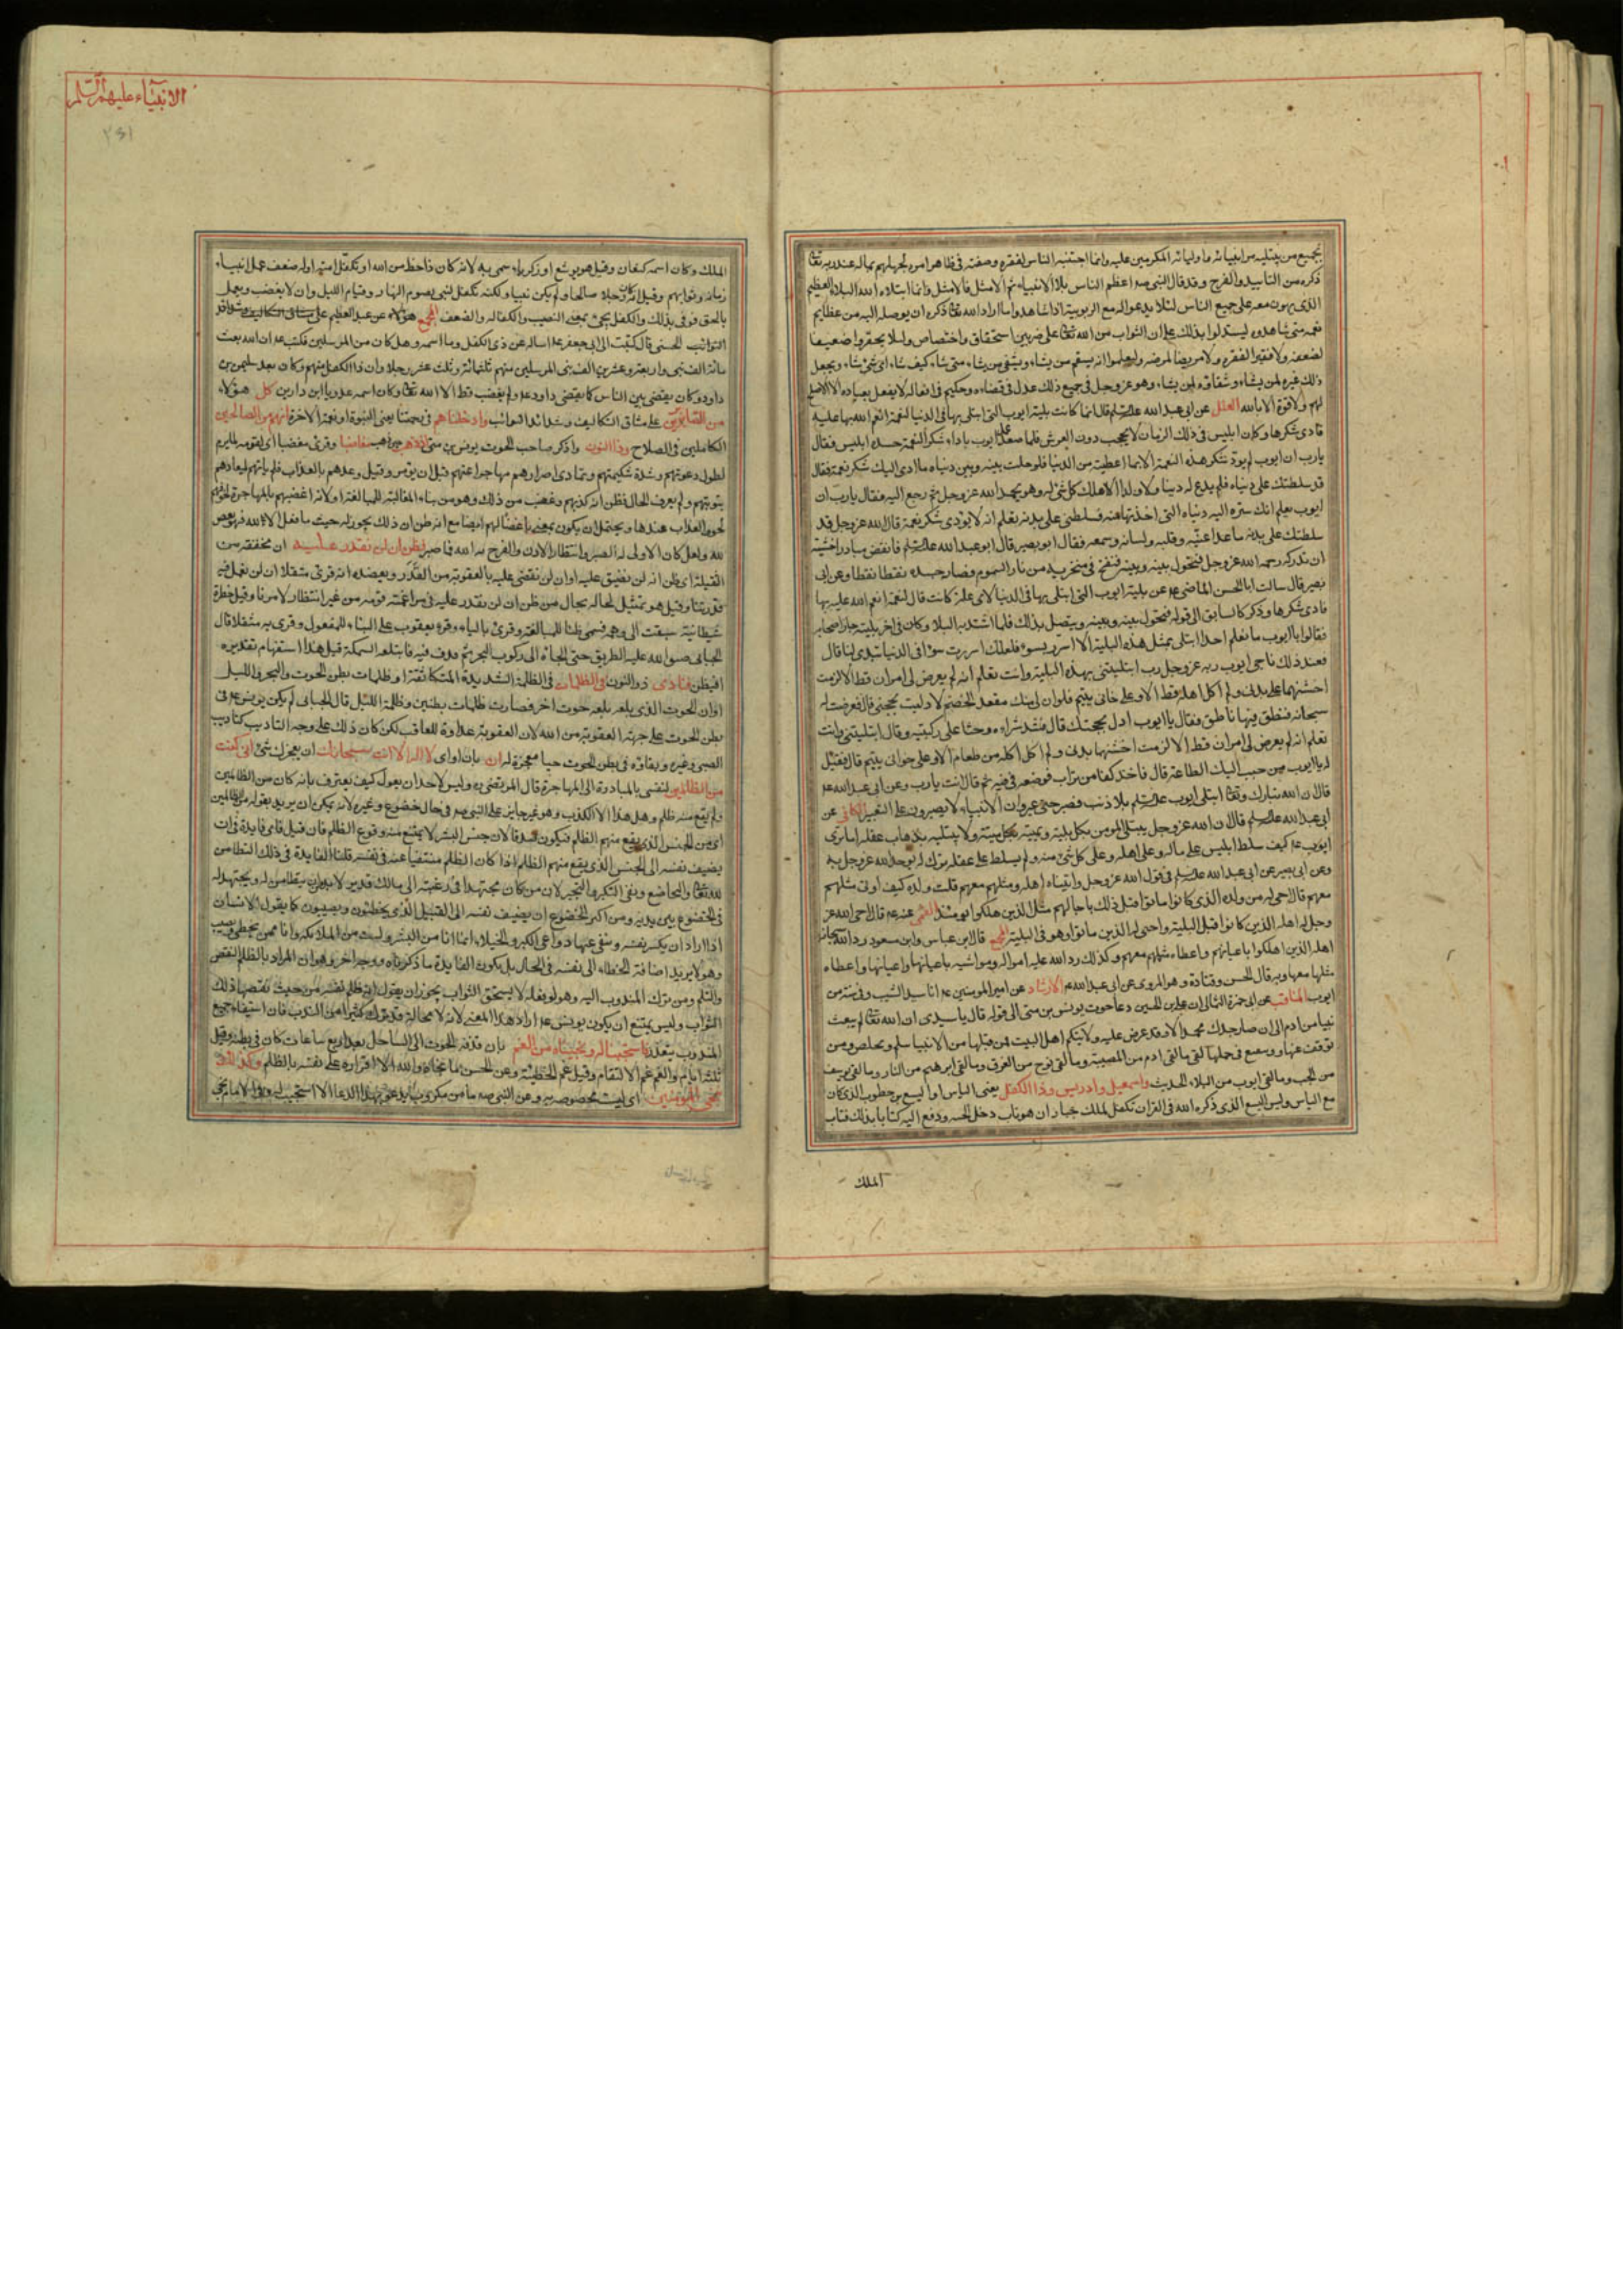 بجميع من يبتليه من انبيائه واوليائه المكرمين عليه وانما اجتنبه الناس لفقره وضعفه في ظاهر امره لجهلهم بماله عند ربه تعا
ذكره من التاييد والفرج وقد قال النبي صه اعظم الناس بلاء الانبياء ثم الامثل فالامثل وانما ابتلاه الله البلاء العظيم
الذي يهون معه على جميع الناس لئلا يدعوا له مع الربوبية اذا شاهدوا ما اراد الله تعا ذكره ان يوصله اليه من عظايم
نعمه متى شاهدوه ليستدلوا بذلك على ان الثواب من الله تعا على ضربين استحقاق واختصاص ولئلا يحقروا ضعيفا
لضعفه ولا فقيرا لفقره ولا مريضا لمرضه وليعلموا انه يسقم من يشاء ويشفي من يشاء متى شاء كيف شاء باي شئ شاء ويجعل
ذلك عبرة لمن يشاء وشقاوة لمن يشاء وهو عز وجل في جميع ذلك عدل في قضاءه وحكيم في افعاله لا يفعل بعباده الا الاصلح
لهم ولا قوة الا بالله العلل عن ابي عبد الله علالسلم قال انما كانت بلية ايوب التي ابتلى بها في الدنيا لنعمة انعم الله بها عليه
فادى شكرها وكان ابليس في ذلك الزمان لا يحجب دون العرش فلما صعد عمل ايوب باداء شكر النعمة حسده ابليس فقال
يارب ان ايوب لم يود شكر هذه النعمة الا بما اعطيته من الدنيا فلو حلت بينه وبين دنياه ما ادى اليك شكر نعمة فقال
قد سلطتك على دنياه فلم يدع له دنيا ولا ولدا الا اهلك كل شئ له وهو يحمد الله عز وجل ثم رجع اليه فقال يارب ان
ايوب يعلم انك سترد اليه دنياه التي اخذتها منه فسلطني على بدنه تعلم انه لا يؤدي شكر نعمة قال الله عز وجل قد
سلطتك على بدنه ما عدا عينيه وقلبه ولسانه وسمعه فقال ابو بصير قال ابو عبد الله علالسلم فانقض مبادرا خشية
ان تدركه رحمة الله عز وجل فتحول بينه وبينه فنفخ في منخريه من نار السموم فصار جسده نقطا نقطا وعن ابي
بصير قال سالت ابا الحسن الماضي عه عن بلية ايوب التي ابتلى بها في الدنيا لاي علة كانت قال لنعمة انعم الله عليه بها
فادى شكرها وذكر كالسابق الى قوله فتحول بينه وبينه ويتصل بذلك فلما اشتد به البلاء وكان في اخر بليته جاءه اصحابه
فقالوا يا ايوب ما نعلم احدا ابتلى بمثل هذه البلية الا لسريرة سوء فلعلك اسررت سوءا في الذي تبدي لنا قال
فعند ذلك ناجى ايوب ربه عز وجل رب ابتليتني بهذه البلية وانت تعلم انه لم يعرض لي امران قط الا لزمت
اخشنهما على بدني ولم آكل اكلة قط الا وعلى خواني يتيم فلو ان لي منك مقعد الخصم لادليت بحجتي قال فعرضت له
سحابة فنطق فيها ناطق فقال يا ايوب ادل بحجتك قال فشد مئزره وجثا على ركبتيه وقال ابتليتني وانت
تعلم انه لم يعرض لي امران قط الا لزمت اخشنهما بدني ولم آكل اكلة من طعام الا وعلى خواني يتيم قال فقيل
له يا ايوب من حبب اليك الطاعة قال فاخذ كفا من تراب فوضعه في فيه ثم قال انت يارب وعن ابي عبد الله عه
قال ان الله تبارك وتعا ابتلى ايوب علالسلم بلا ذنب فصبر حتى عير وان الانبياء لا يصبرون على التعيير الكافي عن
ابي عبد الله علالسلم قال ان الله عز وجل يبتلي المومن بكل بلية ويميته بكل ميتة ولا يبتليه بذهاب عقله اما ترى
ايوب عه كيف سلط ابليس على ماله وعلى اهله وعلى كل شئ منه ولم يسلط على عقله ترك له ليوحد الله عز وجل به
وعن ابي بصير عن ابي عبد الله علالسلم في قول الله عز وجل واتيناه اهله ومثلهم معهم قلت ولده كيف اوتي مثلهم
معهم قال احيي له من ولده الذي كانوا ماتوا قبل ذلك باجالهم مثل الذين هلكوا يومئذ القمي عنه عه قال احيى الله عز
وجل له اهله الذين كانوا قبل البلية واحيى له الذين ماتوا وهو في البلية المجمع قال ابن عباس وابن مسعود رد الله سبحانه
اهله الذين اهلكوا باعيانهم واعطاه مثلهم معهم وكذلك رد الله عليه امواله ومواشيه باعيانها واعطاه
مثلها معها وبه قال الحسن وقتادة وهو المروي عن ابي عبد الله عه الارشاد عن امير المومنين عه انا سيد الشيب وفي سنة من
ايوب المناقب عن ابي حمزة الثمالي ان علي بن الحسين دعا حوت يونس بن متى الى قوله قال يا سيدي ان الله تعا لم يبعث
نبيا من ادم الى ان صار جدك محمد الا وقد عرض عليه ولايتكم اهل البيت فمن قبلها من الانبيا سلم وتخلص ومن
توقف عنها وتمنع في حملها لقي ما لقي ادم من المصيبة وما لقي نوح من الغرق وما لقي ابرهيم من النار وما لقي يوسف
من الجب وما لقي ايوب من البلاء الحديث واسمعيل وادريس وذا الكفل يعني الياس او اليسع بن خطوب الذي كان
مع الياس وليس اليسع الذي ذكره الله في القران تكفل لملك جبار ان هو تاب دخل الجنة ودفع اليه كتابا بذلك فتاب
الملك
الانبياء عليهم السلم
الملك وكان اسمه كنعان وقيل هو يوشع او زكريا سمي به لانه كان ذا حظ من الله او تكفل امته او له ضعف عمل انبياء
زمانه وثوابهم وقيل انه كان رجلا صالحا ولم يكن نبيا ولكنه تكفل لنبي بصوم النهار وقيام الليل وان لا يغضب ويعمل
بالحق فوفى بذلك والكفل يجئ بمعنى النصيب والكفالة والضعف المجمع عن عبد العظيم
الحسني قال كتبت الى ابي جعفر عه اساله عن ذي الكفل وما اسمه وهل كان من المرسلين فكتب عه ان الله بعث
مائة الف نبي واربعة وعشرين الف نبي المرسلين منهم ثلثمائة وثلث عشر رجلا وان ذا الكفل منهم وكان بعد سليمن بن
داود وكان يقضي بين الناس كما يقضي داود عه ولم يغضب قط الا لله تعا وكان اسمه عدويا ابن دارين كل هؤلاء
من الصابرين على مشاق التكاليف وشدائد النوائب وادخلناهم في رحمتنا يعني النبوة او نعمة الاخرة انهم من الصالحين
الكاملين في الصلاح وذا النون واذكر صاحب الحوت يونس بن متى اذ ذهب مغاضبا وقرئ مغضبا اي لقومه لما برم
لطول دعوتهم وشدة شكيمتهم وتمادي اصرارهم مهاجرا عنهم قبل ان يؤمر وقيل وعدهم بالعذاب فلم ياتهم لميعادهم
بتوبتهم ولم يعرف الحال فظن انه كذبهم وغضب من ذلك وهو من بناء المغالبة للمبالغة او لانه اغضبهم بالمهاجرة لخوفهم
لحوق العذاب عندها
فظن ان لن نقدر عليه ان مخففة من
الثقيلة اي ظن انه لن نضيق عليه او ان لن نقضي عليه بالعقوبة من القدر ويعضده انه قرئ مثقلا او لن نعمل فيه
قدرتنا وقيل هو تمثيل لحاله بحال من ظن ان لن نقدر عليه في مراغمته قومه من غير انتظار لامرنا وقيل خطرة
شيطانية سبقت الى وهمه فسمي ظنا للمبالغة وقرئ بالياء وقرء يعقوب على البناء للمفعول وقرئ به مثقلا قال
الجبائي ضيق الله عليه الطريق حتى الجاه الى ركوب البحر ثم قذف فيه فابتلعه السمكة قيل هذا استفهام تقديره
افيظن فنادى ذو النون في الظلمات في الظلمة الشديدة المتكاثفة او ظلمات بطن الحوت والبحر والليل
او ان الحوت الذي بلعه بلعه حوت اخر فصارت ظلمات بطنين وظلمة الليل قال الجبائي لم يكن يونس عه في
بطن الحوت على جهة العقوبة من الله لان العقوبة عداوة للمعاقب لكن كان ذلك على وجه التاديب كتاديب
الصبي وغيره وبقاؤه في بطن الحوت حيا معجزة له ان بان او اي لا اله الا انت سبحانك ان يعجزك شئ اني كنت
من الظالمين لنفسي بالمبادرة الى المهاجرة قال المرتضى ره وليس لاحد ان يقول كيف يعترف بانه كان من الظالمين
ولم يقع منه ظلم وهل هذا الا الكذب وهو غير جايز على النبي صه في حال خضوع وغيره لانه يمكن ان يريد بقوله من الظالمين
اي من الجنس الذي يقع منهم الظلم فيكون صدقا لان جنس البشر لا يمتنع منه وقوع الظلم فان قيل فاي فايدة في ان
يضيف نفسه الى الجنس الذي يقع منهم الظلم اذا كان الظلم منتفيا عنه في نفسه قلنا الفايدة في ذلك التطامن
لله تعا والتخاضع ونفي التكبر والتجبر لان من كان مجتهدا في رغبته الى مالك قدير لا بد ان يتطامن له ويجتهد له
في الخضوع بين يديه ومن اكبر الخضوع ان يضيف نفسه الى القبيل الذي يخطئون ويصيبون كما يقول الانسان
اذا اراد ان يكسر نفسه وينفي عنها دواعي الكبر والخيلاء انما انا من البشر ولست من الملائكة وانا ممن يخطئ ويصيب
وهو لا يريد اضافة الخطاء الى نفسه في الحال بل يكون الفايدة ما ذكرناه ووجه اخر وهو ان المراد بالظلم النقص
والثلم ومن ترك المندوب اليه وهو لو فعله لاستحق الثواب يجوز ان يقول انه ظلم نفسه من حيث نقصها ذلك
الثواب وليس يمتنع ان يكون يونس عه اراد هذا المعنى لانه لا محالة قد ترك كثيرا من الندب فان استيفاء جميع
المندوب يتعذر فاستجبنا له ونجيناه من الغم بان قذفه الحوت الى الساحل بعد اربع ساعات كان في بطنه وقيل
ثلثة ايام والغم غم الالتقام وقيل غم الخطيئة وعن الحسن ما نجاه والله الا اقراره على نفسه بالظلم وكذلك
ننجي المؤمنين اي ليست مخصوصة به وعن النبي صه ما من مكروب يدعو بهذا الدعاء الا استجيب له وفي الامام نجي